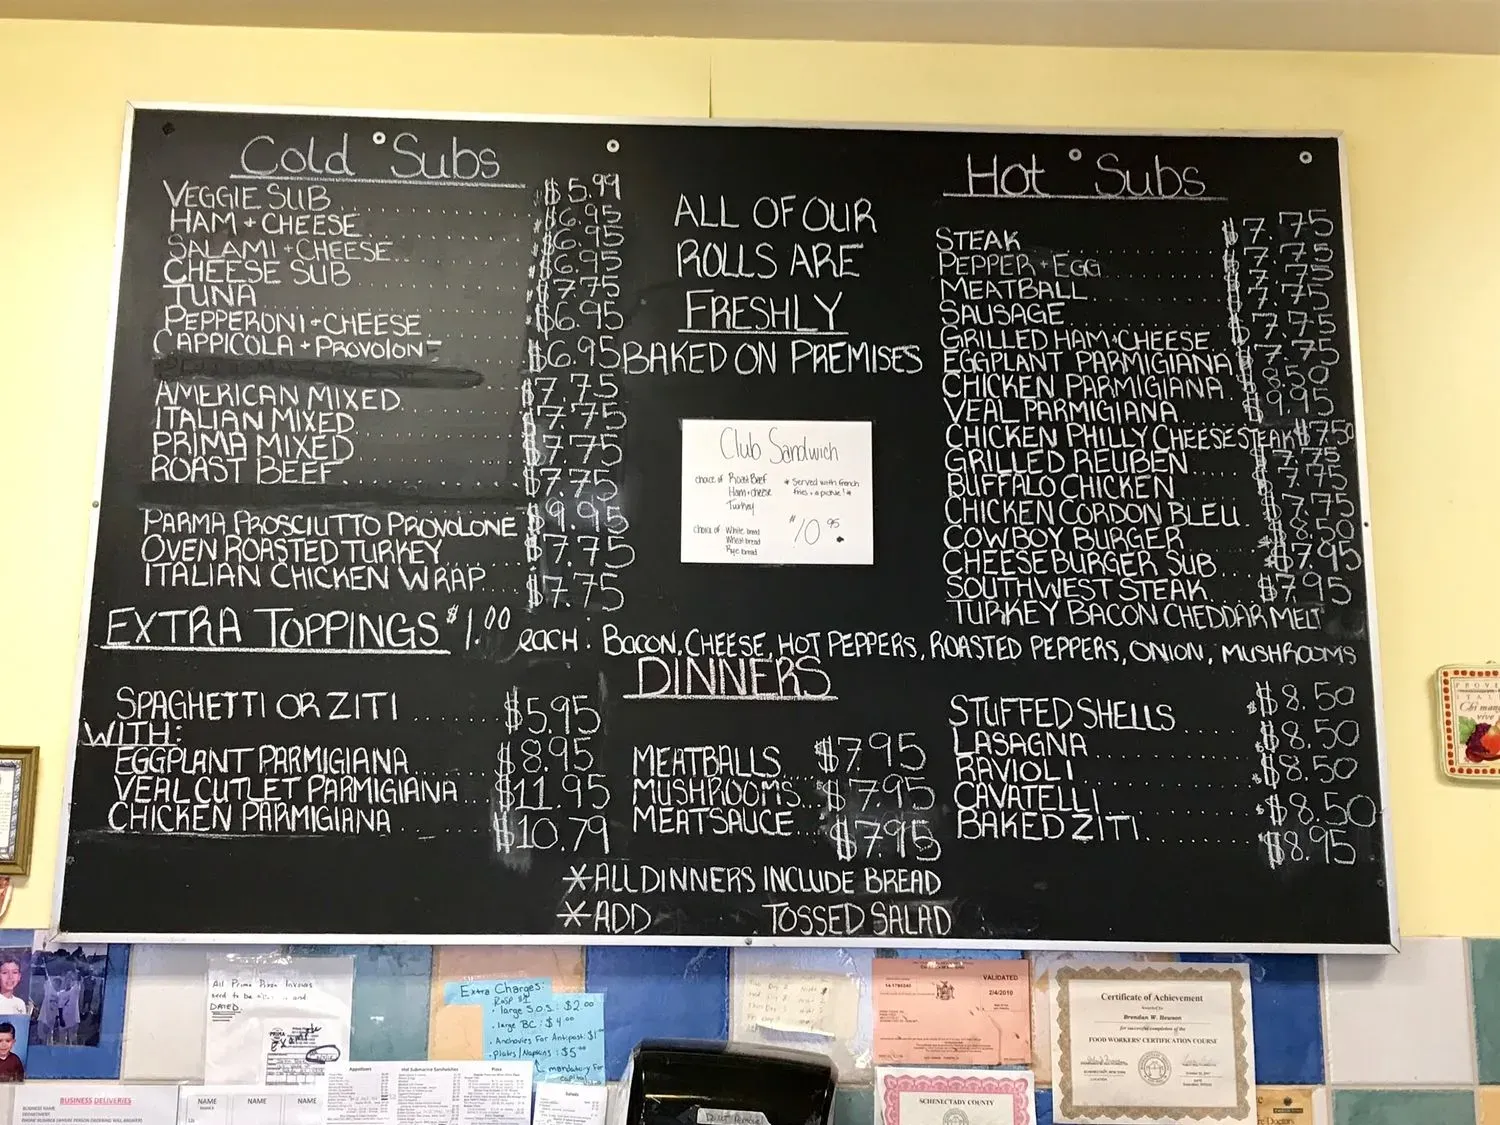 Cold Subs
VEGGIE SUB $5.99
HAM + CHEESE $6.95
SALAMI + CHEESE $6.95
CHEESE SUB $6.95
TUNA $7.75
PEPPERONI + CHEESE $6.95
CAPPICOLA + PROVOLONE $6.95
AMERICAN MIXED $7.75
ITALIAN MIXED $7.75
PRIMA MIXED $7.75
ROAST BEEF $7.75
PARMA PROSCIUTTO PROVOLONE $9.95
OVEN ROASTED TURKEY $7.75
ITALIAN CHICKEN WRAP $7.75
ALL OF OUR
ROLLS ARE
FRESHLY
BAKED ON PREMISES
Club Sandwich
choice of Roast Beef
Ham + cheese
Turkey
* Served with french
fries + a pickle! *
choice of White bread
Wheat bread
Rye bread
$10.95
Hot Subs
STEAK $7.75
PEPPER + EGG $7.75
MEATBALL $7.75
SAUSAGE $7.75
GRILLED HAM + CHEESE $7.75
EGGPLANT PARMIGIANA $7.75
CHICKEN PARMIGIANA $8.50
VEAL PARMIGIANA $9.95
CHICKEN PHILLY CHEESESTEAK $7.50
GRILLED REUBEN $7.75
BUFFALO CHICKEN $7.75
CHICKEN CORDON BLEU $7.75
COWBOY BURGER $8.50
CHEESEBURGER SUB $7.95
SOUTHWEST STEAK $7.95
TURKEY BACON CHEDDAR MELT
EXTRA TOPPINGS $1.00 EACH: BACON, CHEESE, HOT PEPPERS, ROASTED PEPPERS, ONION, MUSHROOMS
DINNERS
SPAGHETTI OR ZITI $5.95
WITH:
EGGPLANT PARMIGIANA $8.95
VEAL CUTLET PARMIGIANA $11.95
CHICKEN PARMIGIANA $10.79
MEATBALLS $7.95
MUSHROOMS $7.95
MEATSAUCE $7.95
STUFFED SHELLS $8.50
LASAGNA $8.50
RAVIOLI $8.50
CAVATELLI $8.50
BAKED ZITI $8.95
*ALL DINNERS INCLUDE BREAD
*ADD TOSSED SALAD
All Prima Pizza Invoices
need to be
and
DATED.
Extra Charges:
large S.O.S: $2.00
large BC: $4.00
Anchovies For Antipast: $1
Plates/Napkins: $5.00
mandatory For
VALIDATED
2/4/2010
Certificate of Achievement
Awarded to
Brendan W. Hewson
for successful completion of the
FOOD WORKERS' CERTIFICATION COURSE
SCHENECTADY COUNTY
BUSINESS DELIVERIES
BUSINESS NAME
DEPARTMENT
NAME
NAME
NAME
Appetizers
Hot Submarine Sandwiches
Pizza
Salads